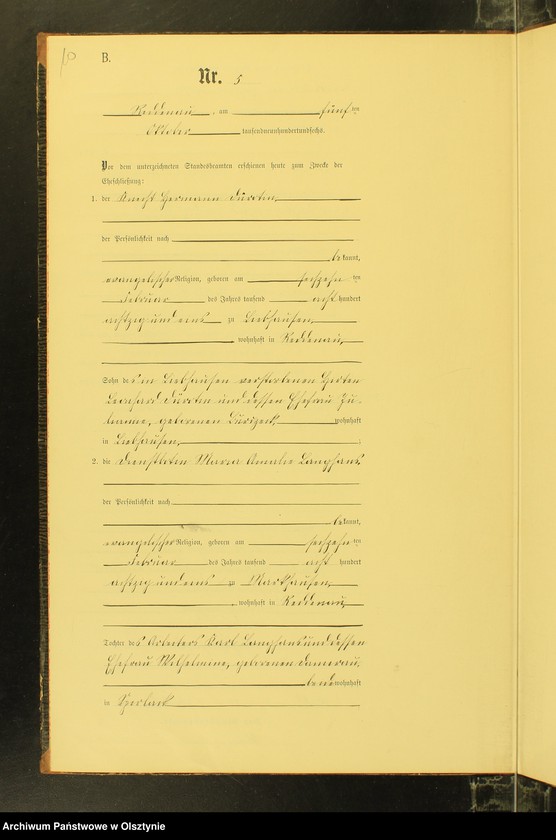 B.
Nr. 5
Reddenau, am fünften
Oktober tausendneunhundertundsechs.
Vor dem unterzeichneten Standesbeamten erschienen heute zum Zwecke der
Eheschließung:
1. der Knecht Hermann
der Persönlichkeit nach
bekannt,
evangelischer Religion, geboren am sechzehnten
Februar des Jahres tausend acht hundert
achtzig und eins zu Liebhausen,
wohnhaft in Reddenau,
Sohn des in Liebhausen verstorbenen Hirten
und dessen Ehefrau Ju-
geborenen wohnhaft
in Liebhausen,
2. die Dienstboten Maria Amalie Langhans
der Persönlichkeit nach
bekannt,
evangelischer Religion, geboren am sechzehnten
Februar des Jahres tausend acht hundert
achtzig und eins zu Markhausen,
wohnhaft in Reddenau,
Tochter des Arbeiters Karl Langhans und dessen
Ehefrau Wilhelmine, geborenen Damerau,
beide wohnhaft
in
Archiwum Państwowe w Olsztynie